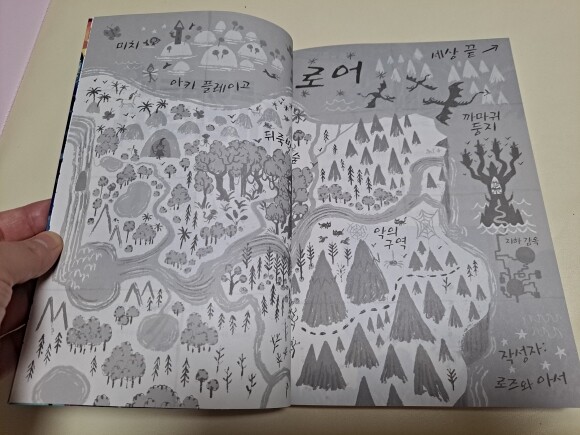 미치
아키 플레이고
로어
세상 끝
까마귀
둥지
뒤죽박죽
숲
악의
구역
지하 감옥
작성자:
로즈와 아서